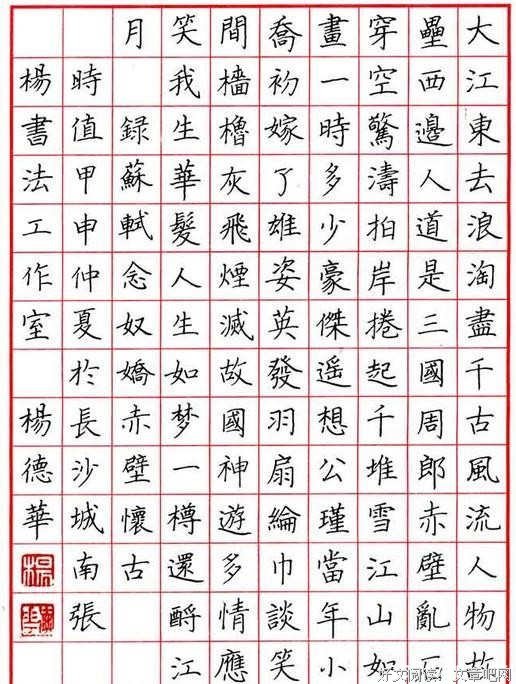 大江東去浪淘盡千古風流人物故
壘西邊人道是三國周郎赤壁亂
穿空驚濤拍岸捲起千堆雪江山如
畫一時多少豪傑遥想公瑾當年小
喬初嫁了雄姿英發羽扇綸巾談笑
間檣櫓灰飛煙滅故國神遊多情應
笑我生華髮人生如梦一樽還酹江
月 録蘇軾念奴嬌赤壁懷古
時值甲申仲夏於長沙城南張
楊書法工作室 楊德華
好文阅读! 文章吧网